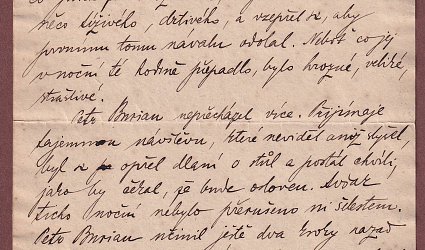 něco tíživého, drtivého, a vzepřel se, aby
prvnímu tomu návalu odolal. Neboť co jej
v noční té hodině přepadlo, bylo hrozné, veliké
strašlivé.
Petr Burian nepřecházel více. Přijímaje
tajemnou návštěvu, které neviděl aniž slyšel,
byl se opřel dlaní o stůl a postál chvíli,
jako by čekal, že bude osloven. Avšak
ticho noční nebylo přerušeno ni šelestem.
Petr Burian učinil ještě dva kroky nazad